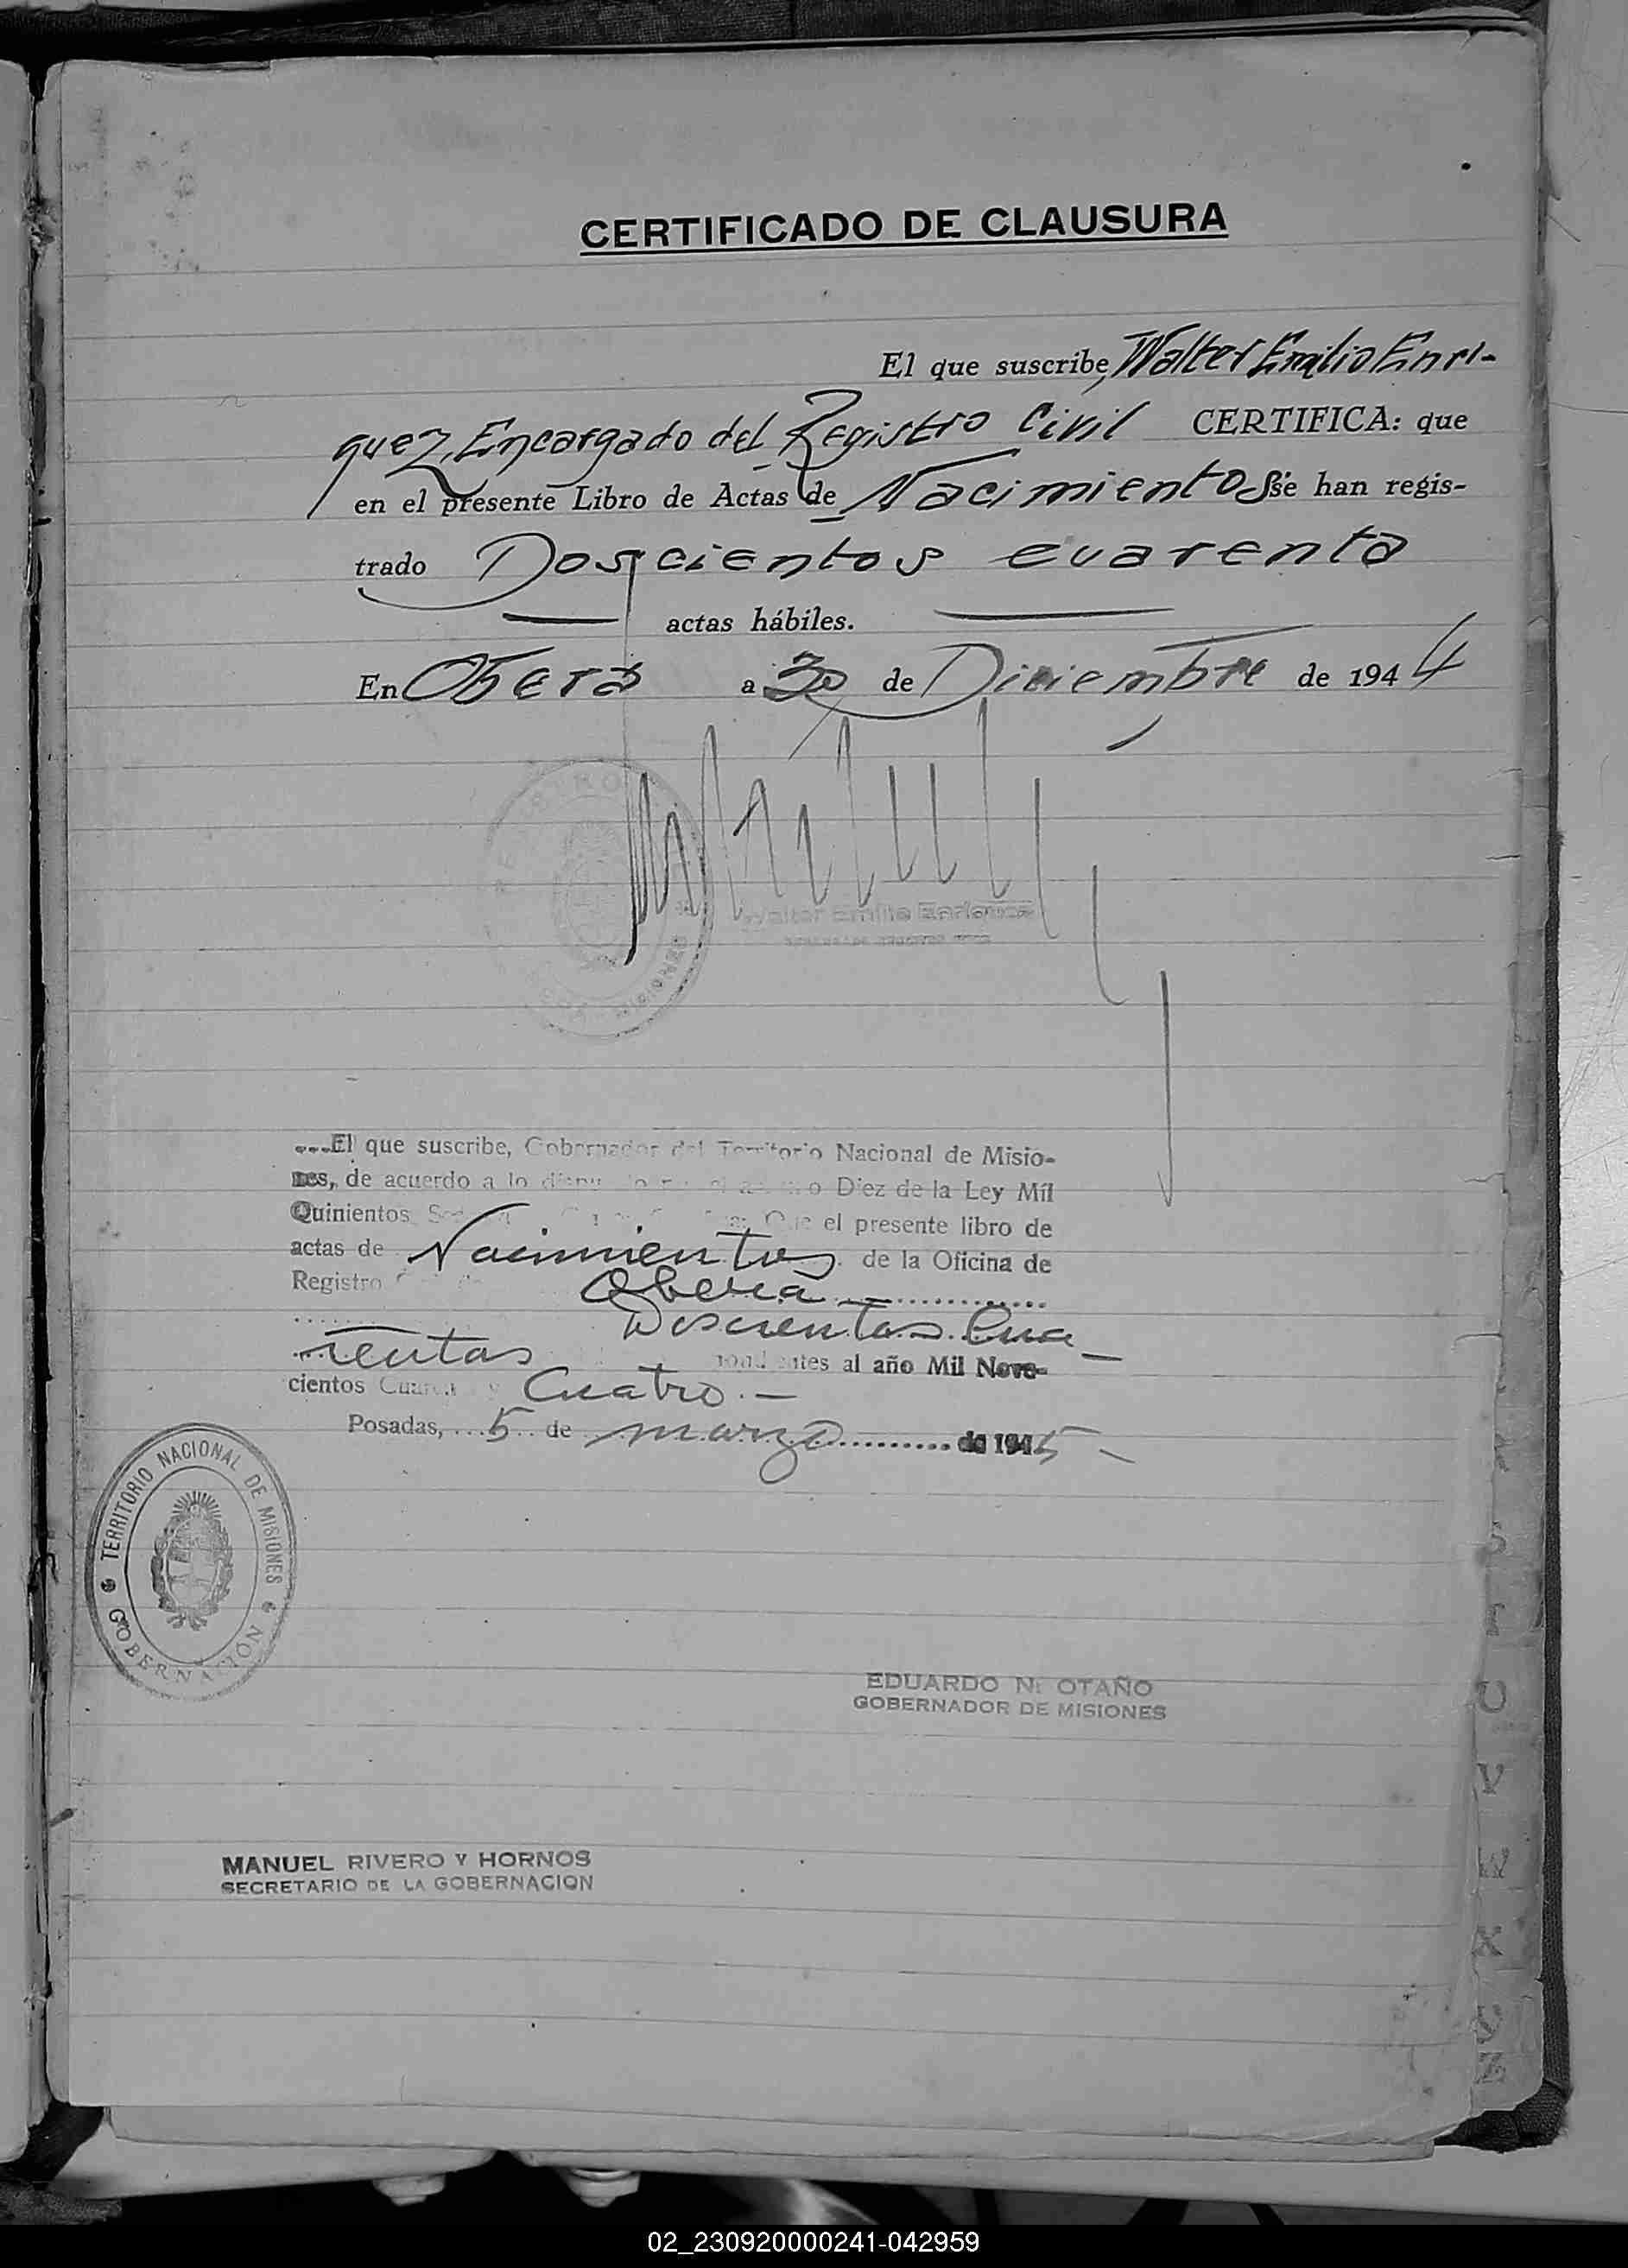 CERTIFICADO DE CLAUSURA
El que suscribe, Walter Emilio Enri-
quez, Encargado del Registro Civil CERTIFICA: que
en el presente Libro de Actas de Nacimientos se han regis-
trado Doscientos cuarenta
actas hábiles.
En Oberá a 30 de Diciembre de 1944
REGISTRO
Walter Emilio Enriquez
...El que suscribe, Gobernador del Territorio Nacional de Misio-
nes, de acuerdo a lo Diez de la Ley Mil
Quinientos Que el presente libro de
actas de Nacimientos de la Oficina de
Registro Oberá
Doscientas Cua
rentas al año Mil Nove-
cientos Cuarenta y Cuatro.-
Posadas, 5 de marzo de 1945-
TERRITORIO NACIONAL DE MISIONES
GOBERNACIÓN
EDUARDO N. OTAÑO
GOBERNADOR DE MISIONES
MANUEL RIVERO Y HORNOS
SECRETARIO DE LA GOBERNACION
U
V
W
X
Z
02_230920000241-042959